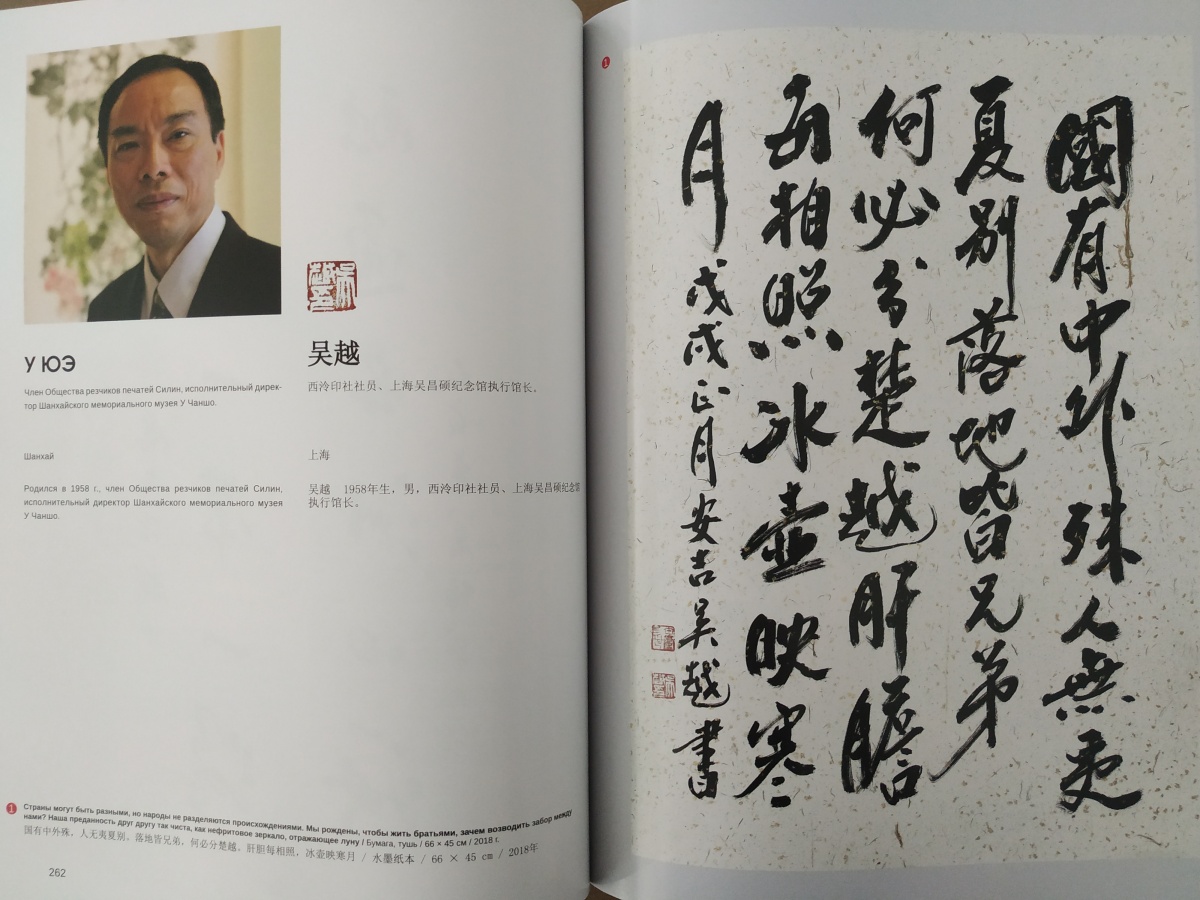 У ЮЭ
Член Общества резчиков печатей Силин, исполнительный дирек-
тор Шанхайского мемориального музея У Чаншо.
Шанхай
Родился в 1958 г., член Общества резчиков печатей Силин,
исполнительный директор Шанхайского мемориального музея
У Чаншо.
吴越
西泠印社社员、上海吴昌硕纪念馆执行馆长。
上海
吴越 1958年生，男，西泠印社社员、上海吴昌硕纪念馆
执行馆长。
1 Страны могут быть разными, но народы не разделяются происхождениями. Мы рождены, чтобы жить братьями, зачем возводить забор между
нами? Наша преданность друг другу так чиста, как нефритовое зеркало, отражающее луну / Бумага, тушь / 66 × 45 см / 2018 г.
国有中外殊，人无夷夏别，落地皆兄弟，何必分楚越，肝胆每相照，冰壶映寒月 / 水墨纸本 / 66 × 45 cm / 2018年
262
1
國有中外殊人無夷
夏别落地皆兄弟
何必分楚越肝膽
每相照冰壶映寒
月戊戌正月安吉吴越書